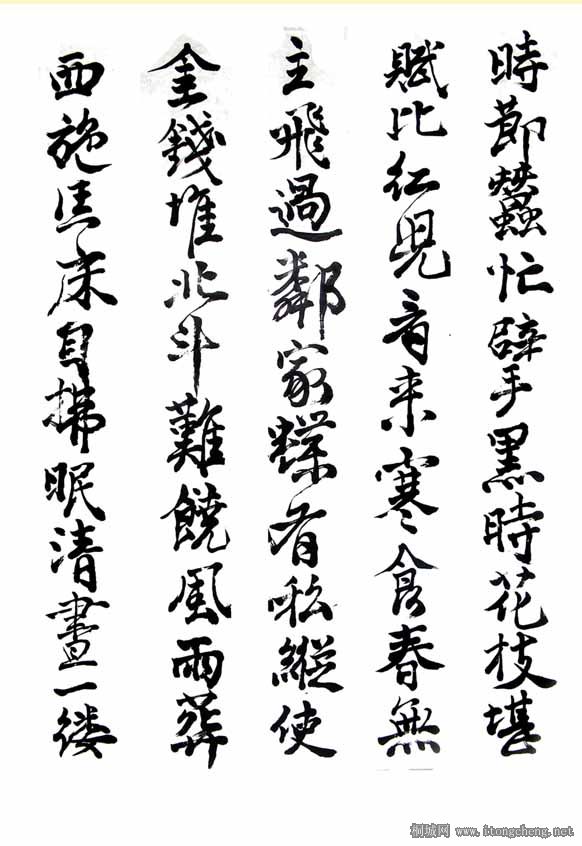 時節蠶忙擘黑時花枝堪
賦比紅兒看来寒食春無
主飛過鄰家蝶有私縱使
金錢堆北斗難饒風雨葬
西施匡床自拂眠清晝一缕
桐城网 www.itongcheng.net